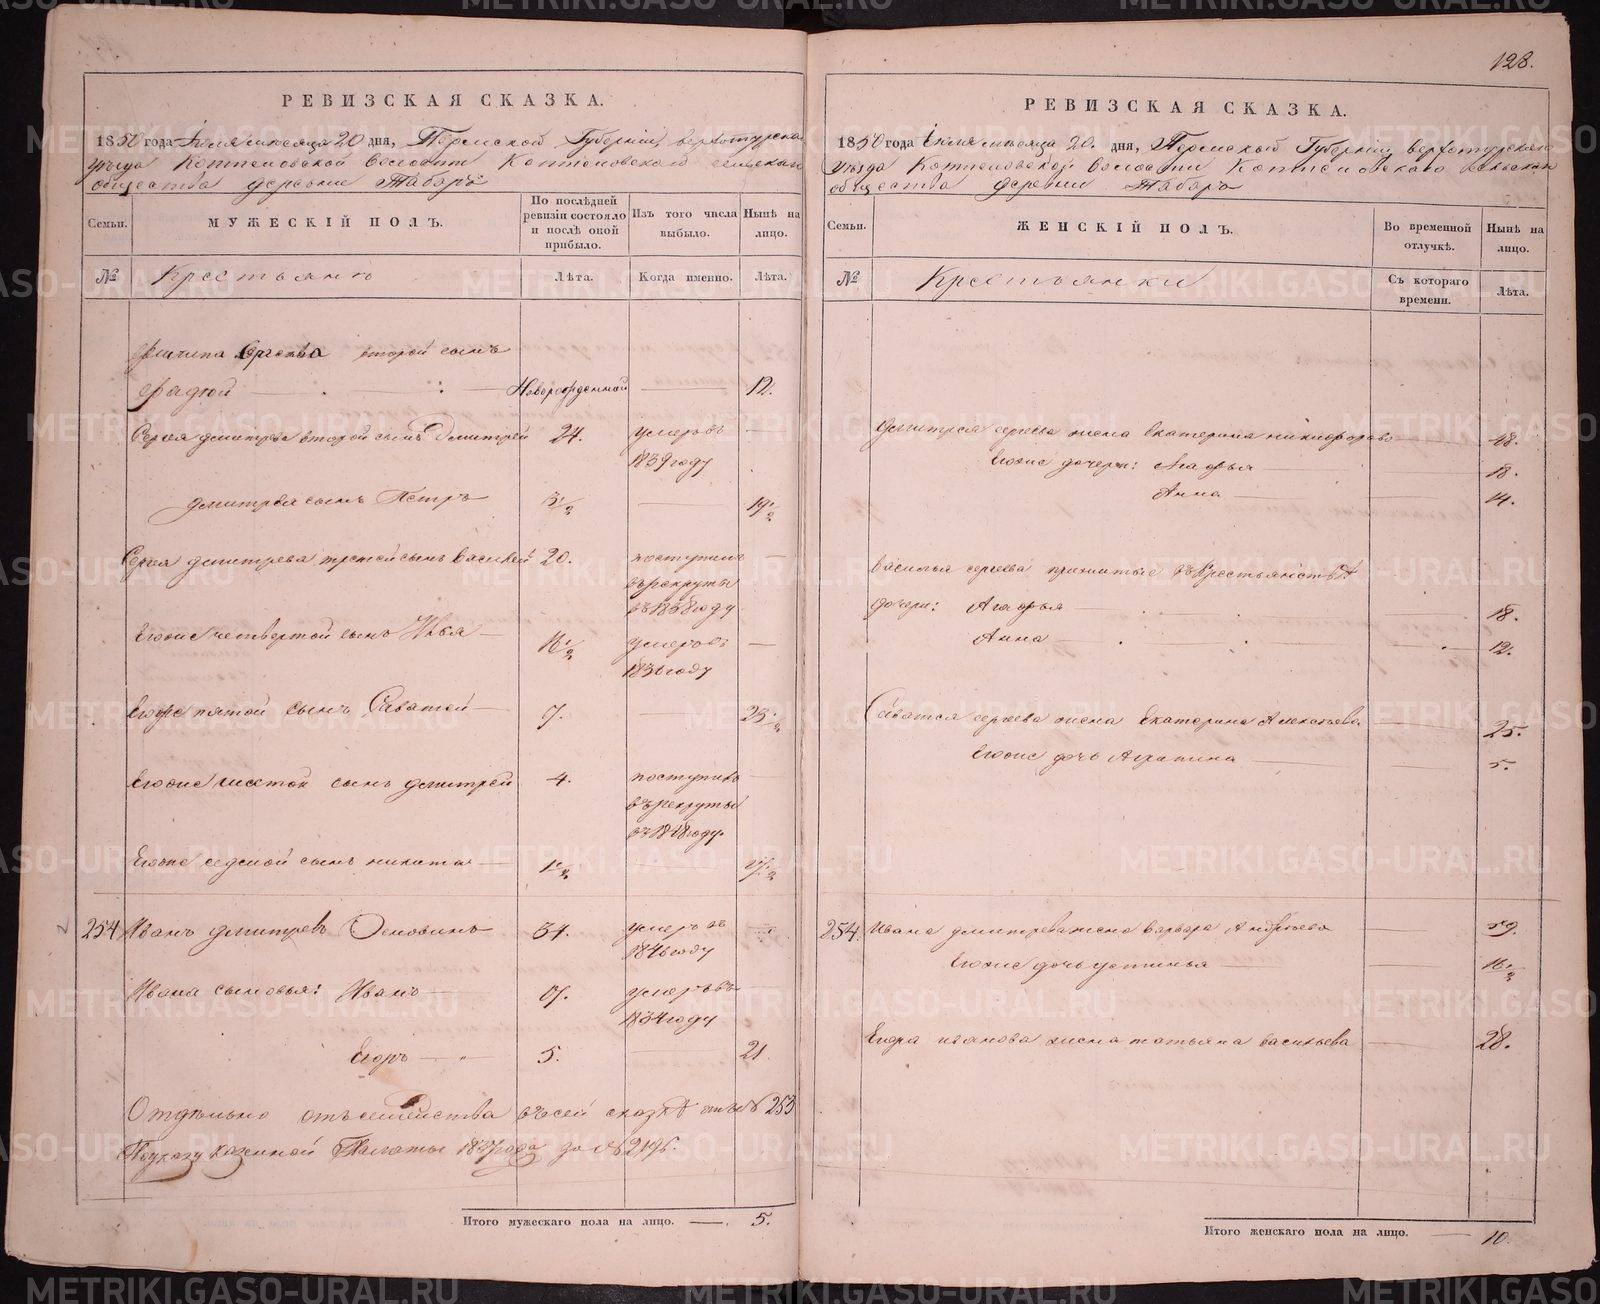 128.
РЕВИЗСКАЯ СКАЗКА.
1850 года Іюля месяца 20 дня, Пермской Губерніи верхотурска
уезда Коптеловской волости Коптеловскаго сельскаго
общества деревни Таборъ
Семьи.
МУЖЕСКІЙ ПОЛЪ.
По послѣдней ревизіи состояло и послѣ оной прибыло.
Изъ того числа выбыло.
Нынѣ на лицо.
№
Крестьянъ
Лѣта.
Когда именно.
Лѣта.
Филипа Сергеева второй сынъ
Фадей Новорожденной 12.
Сергея дмитрева второй сынъ Дмитрей 24. умеръ въ
1839 году
дмитрея сынъ Петръ 3 1/2 19 1/2
Сергея дмитрева третей сынъ Василей 20. поступилъ
въ рекруты
въ 1838 году
Егоже четвертой сынъ Илья 16 1/2 умеръ въ
1836 году
Егоже пятой сынъ Саватей 7. 23
Егоже шестой сынъ дмитрей 4. поступилъ
въ рекруты
въ 1848 году.
Егоже седмой сынъ никита 1 1/2
254 Иванъ дмитревъ 51. умеръ въ
1846 году
Ивана сыновья: Иванъ 7. умеръ въ
1834 году
Егоръ 5. 21
Отдѣльно отъ семейства въ сей сказкѣ отъ № 253
По указу казенной Палаты 1837 года за №
Итого мужескаго пола на лицо. 5.
РЕВИЗСКАЯ СКАЗКА.
1850 года Іюля месяца 20. дня, Пермской Губерніи верхотурскаго
уезда Коптеловской волости Коптеловскаго сельскаго
общества деревни Таборъ
Семьи.
ЖЕНСКІЙ ПОЛЪ.
Во временной отлучкѣ.
Нынѣ на лицо.
№
Крестьянки
Съ котораго времени.
Лѣта.
Дмитрея сергеева жена Екатерина никифорова 48.
Егоже дочери: Агафья 18.
Анна 14.
Василья сергеева прижитые въ крестьянствѣ
дочери: Агафья 18.
Анна 12.
Саватея сергеева жена Екатерина Алексеева 25.
Егоже дочь Агрипина 5.
254. Ивана дмитрева жена варвара Андреева 59.
Егоже дочь устинья 16 1/2
Егора иванова жена татьяна васильева 28.
Итого женскаго пола на лицо. 10.
METRIKI.GASO-URAL.RU